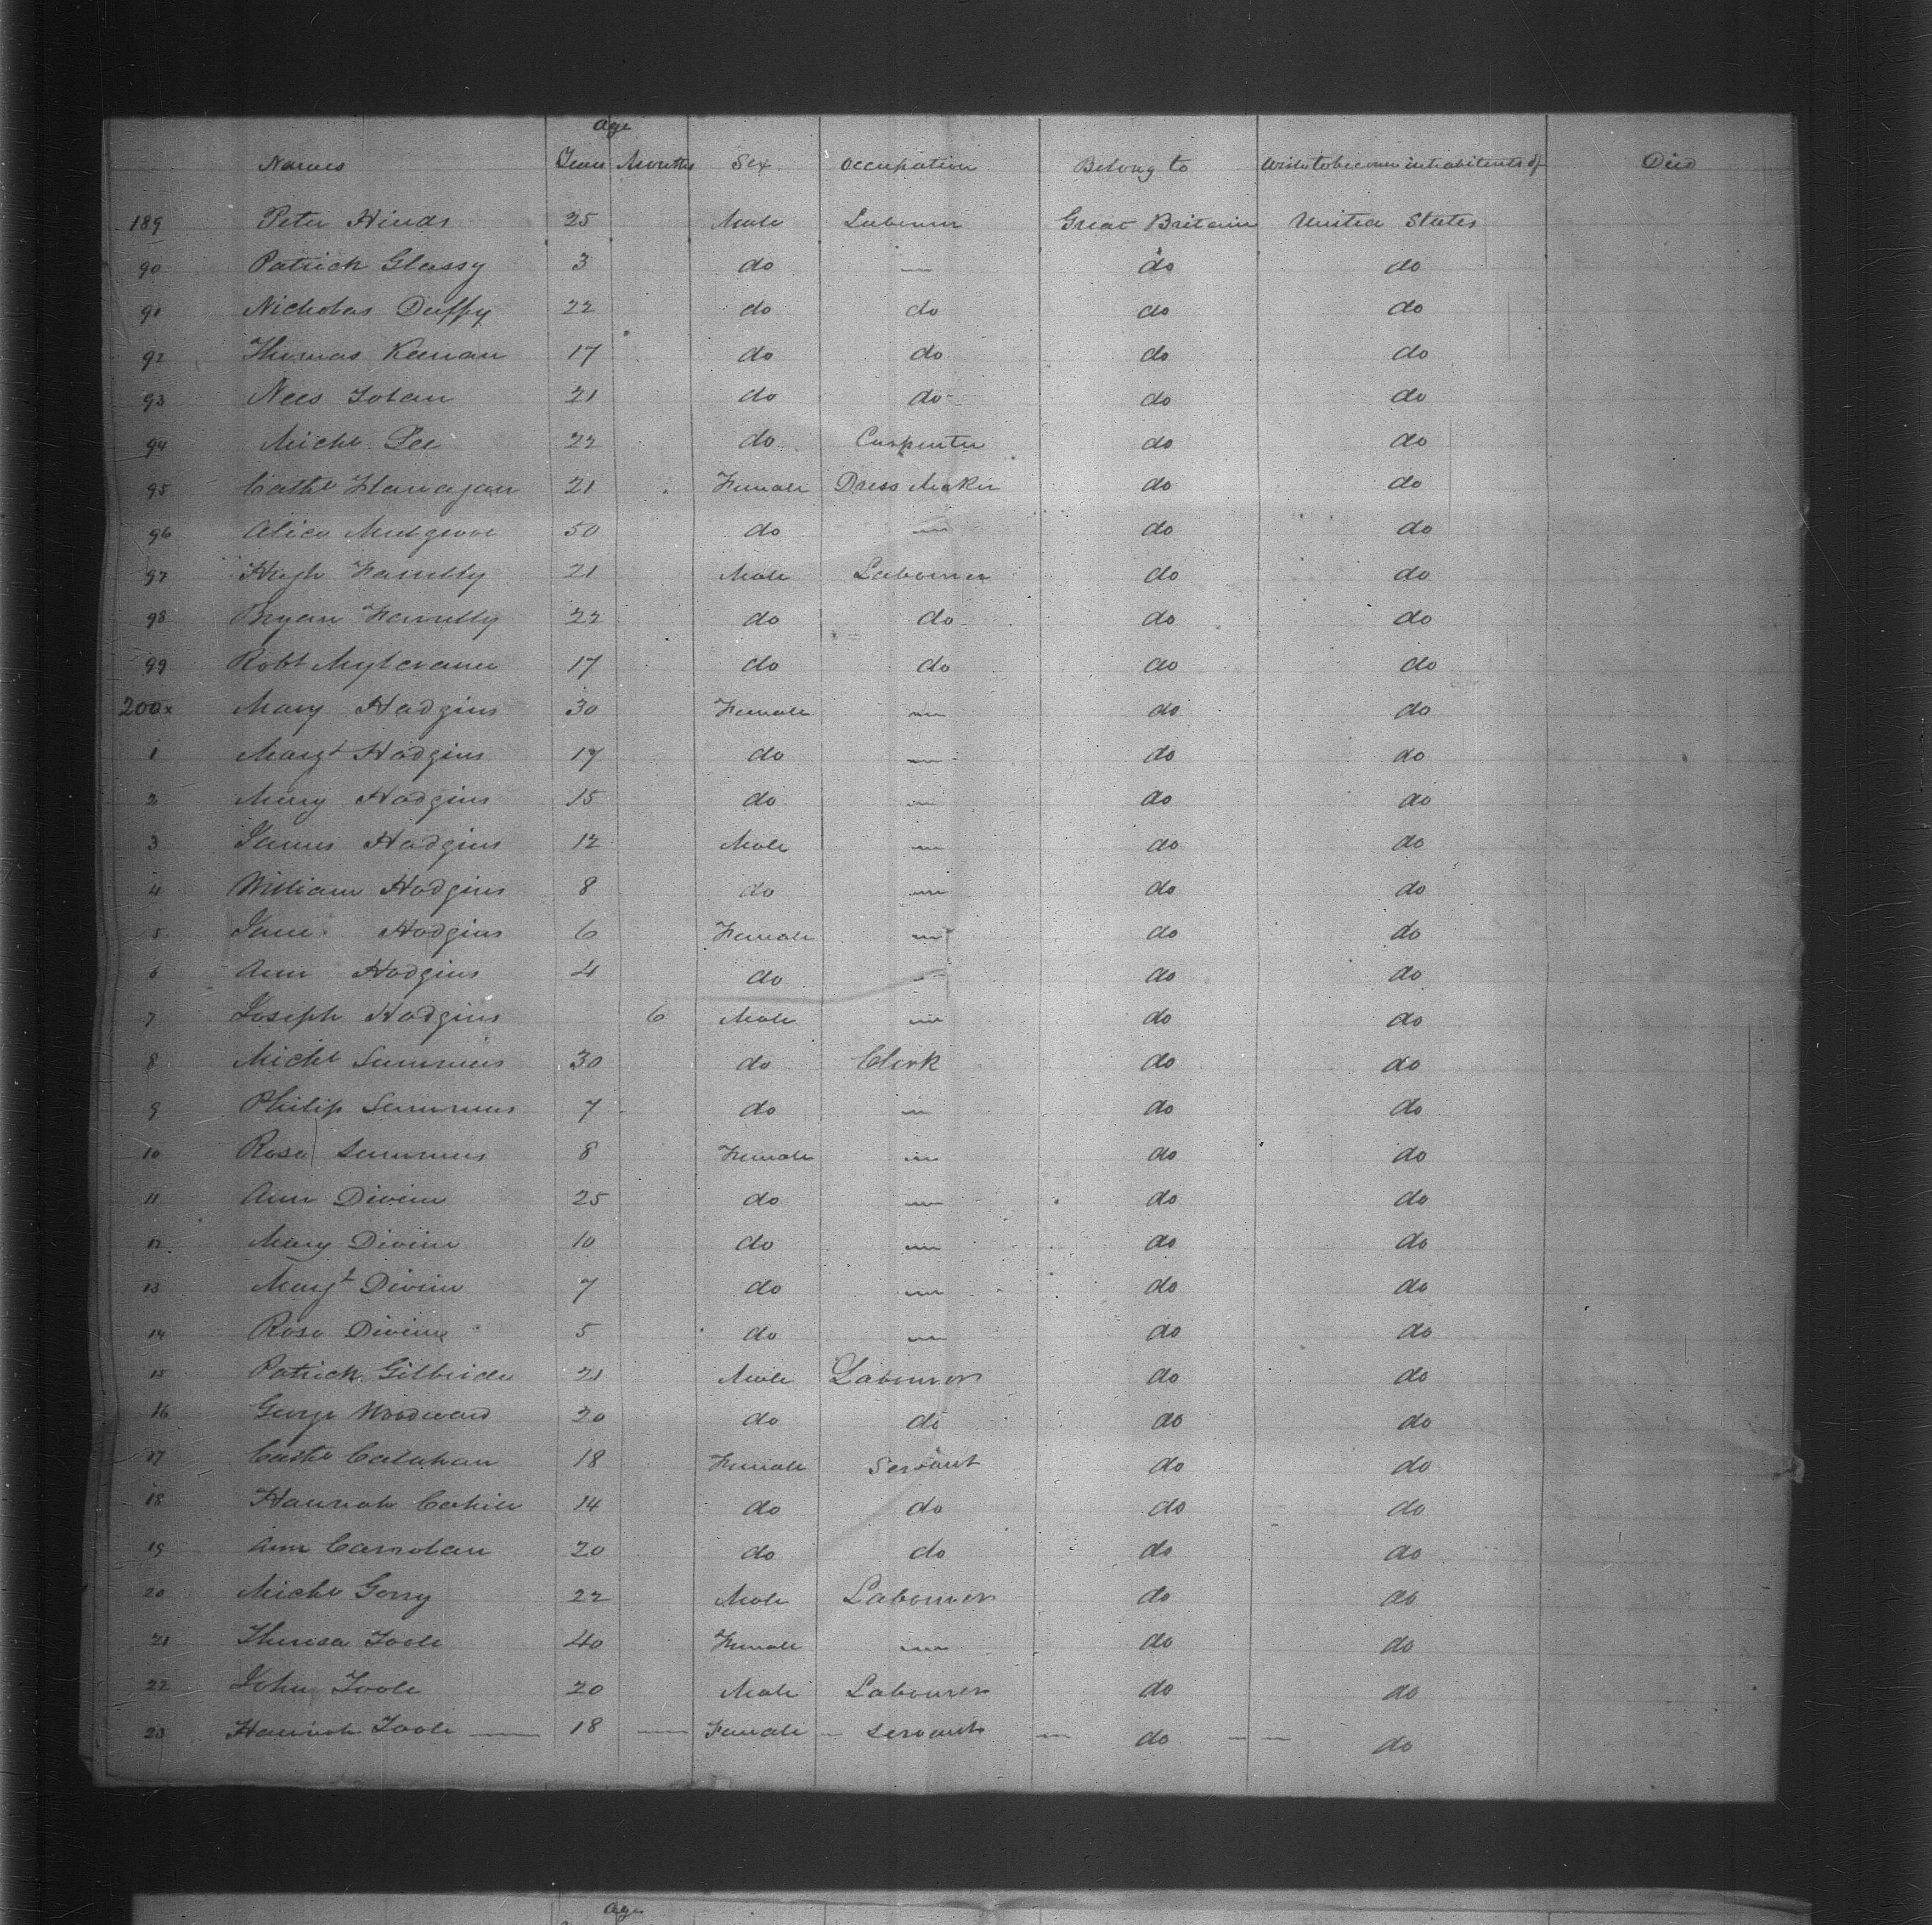 Age
Names Years Months Sex Occupation Belong to Wish to become inhabitants of Died
189 Peter Hinds 25 Male Labourer Great Britain United States
90 Patrick Glassy 3 do — do do
91 Nicholas Duffy 22 do do do do
92 Thomas Keenan 17 do do do do
93 Nees Tolan 21 do do do do
94 Michl Lee 22 do Carpenter do do
95 Cathe Flanagan 21 Female Dress Maker do do
96 Alice 50 do — do do
97 Hugh Farrelly 21 Male Labourer do do
98 Bryan Farrelly 22 do do do do
99 Robt 17 do do do do
200x Mary Hodgins 30 Female — do do
1 Margt Hodgins 17 do — do do
2 Mary Hodgins 15 do — do do
3 James Hodgins 12 Male — do do
4 William Hodgins 8 do — do do
5 Jane Hodgins 6 Female — do do
6 Ann Hodgins 4 do — do do
7 Joseph Hodgins 6 Male — do do
8 Michl Summers 30 do Clerk do do
9 Philip Summers 7 do — do do
10 Rose Summers 8 Female — do do
11 Ann Divine 25 do — do do
12 Mary Divine 10 do — do do
13 Margt Divine 7 do — do do
14 Rose Divine 5 do — do do
15 Patrick Gilbride 21 Male Labourer do do
16 George Woodward 20 do do do do
17 Cathe Calahan 18 Female Servant do do
18 Hannah Cahill 14 do do do do
19 Ann Carrolan 20 do do do do
20 Michl Gorry 22 Male Labourer do do
21 Theresa Toole 40 Female — do do
22 John Toole 20 Male Labourer do do
23 Hannah Toole — 18 — Female — Servant — do — — do
Age